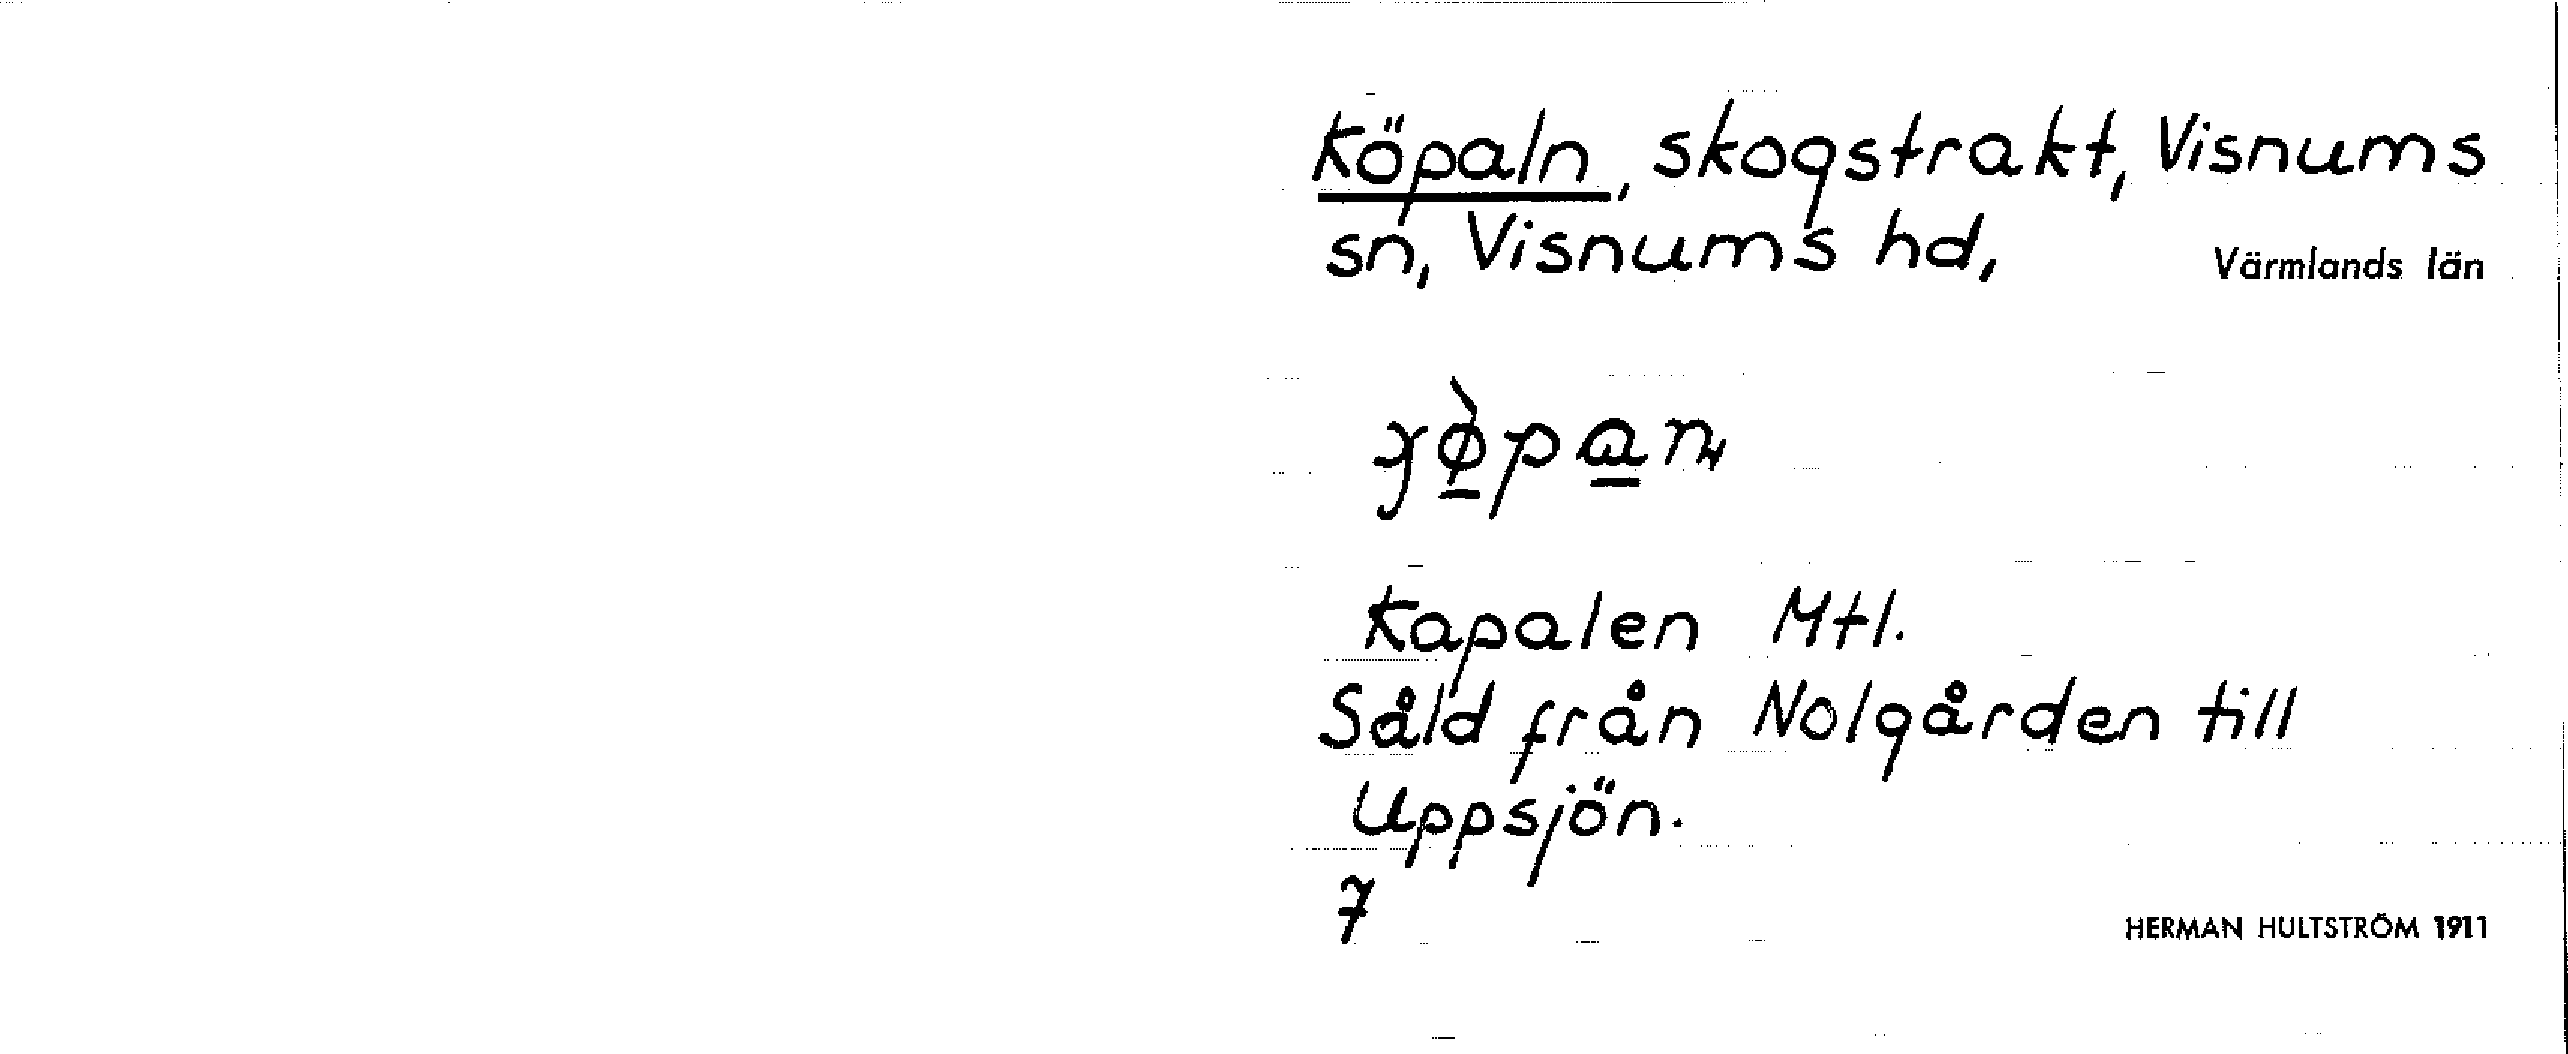 Köpaln, skogstrakt, Visnums
sn, Visnums hd, Värmlands län
Kapalen Mtl.
Såld från Nolgården till
Uppsjön.
7
HERMAN HULTSTRÖM 1911